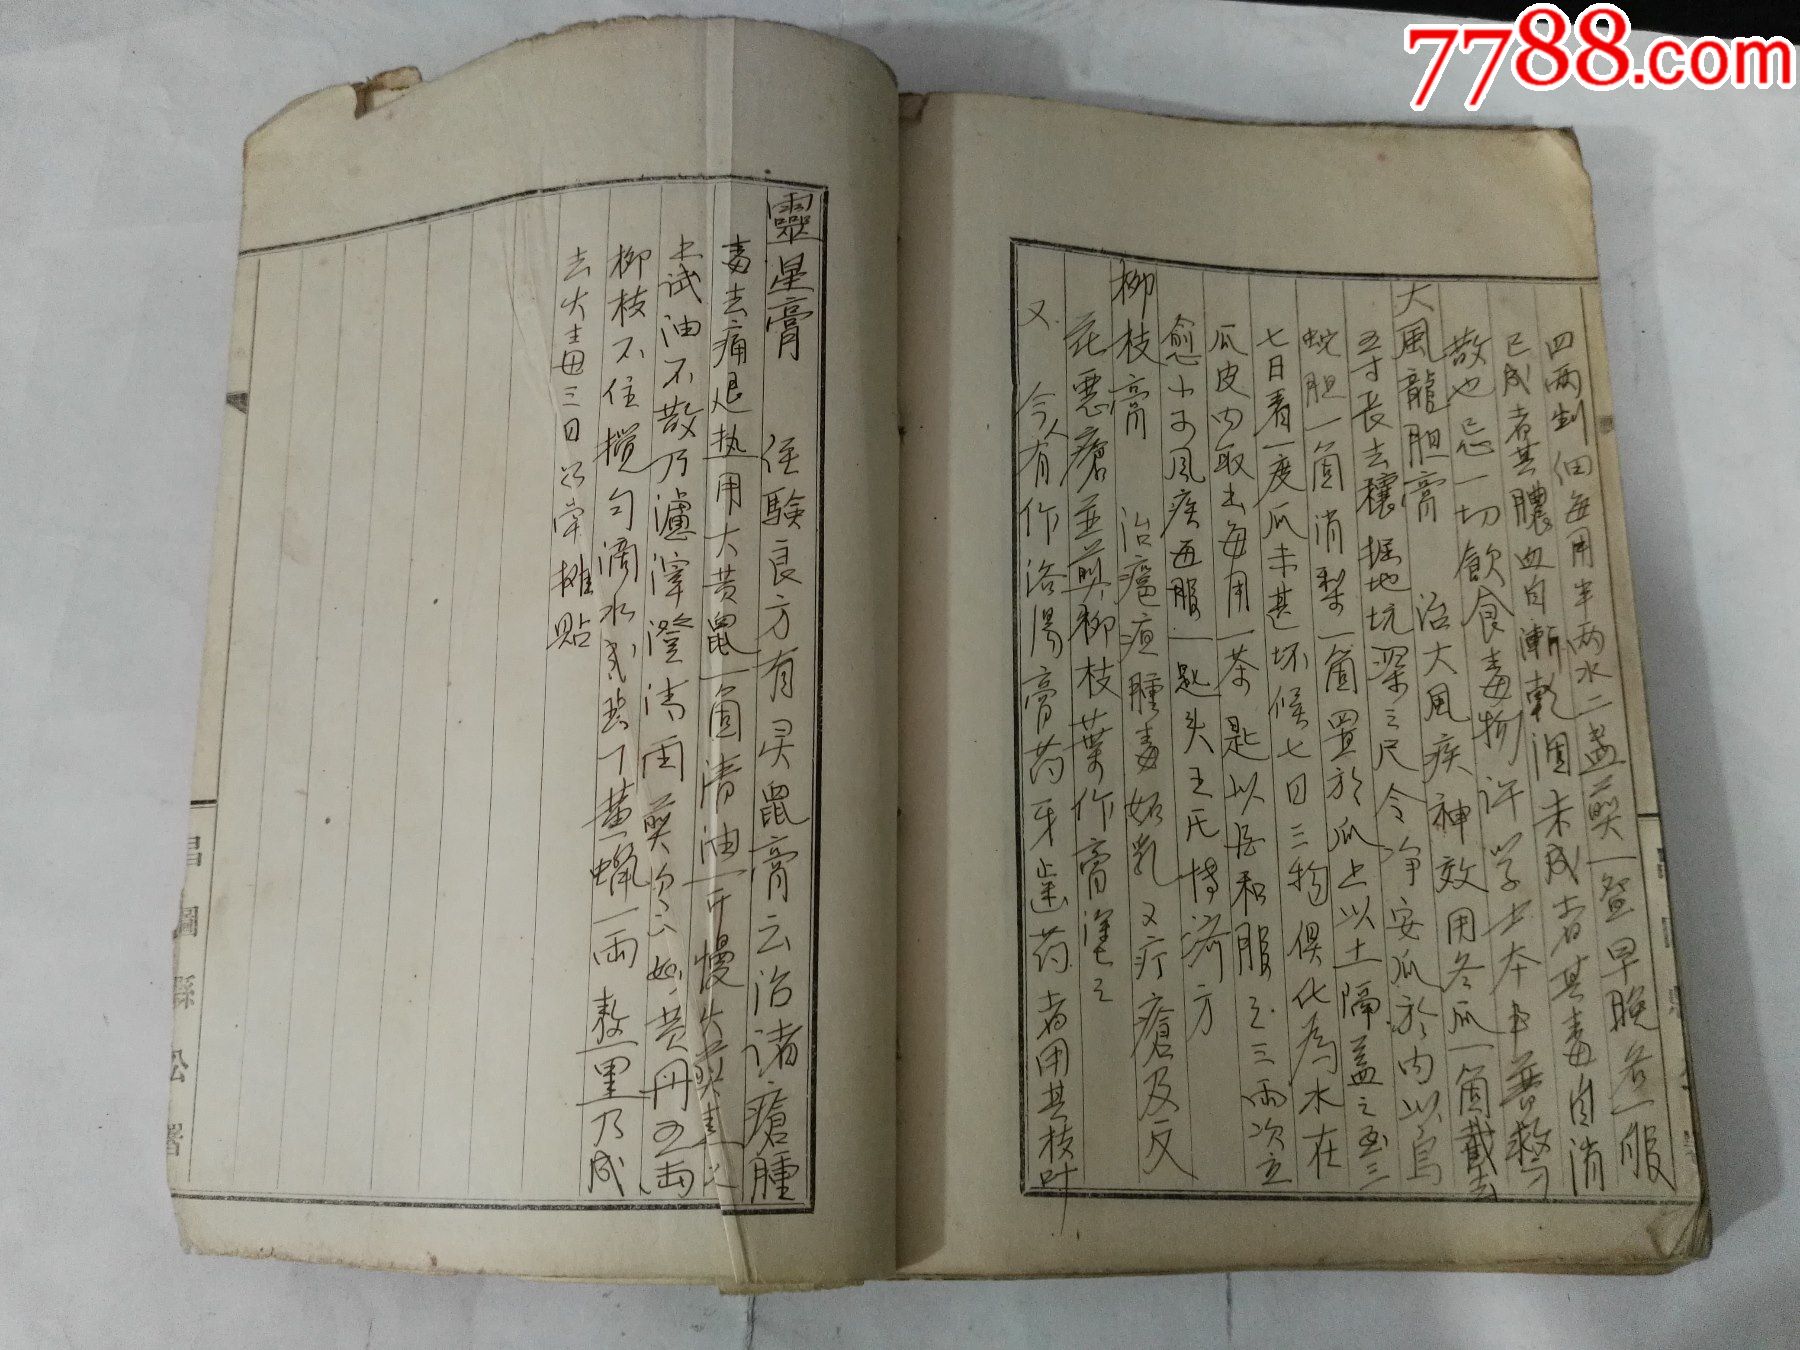 7788.com
四两剉細每用半两水二盏煎一盏早晚各一服
已成者其膿血自漸乾涸未成者其毒自消
散也忌一切飲食毒物許学士本事普救方
大風龍胆膏 治大風疾神效用冬瓜一箇截去
五寸长去穰掘地坑深三尺令净安瓜於内以烏
蛇胆一箇消梨一箇置於瓜上以土隔盖之至三
七日看一度瓜未甚坏候七日三物俱化為水在
瓜皮内取出每用一茶匙以酒和服之三兩次立
愈小可風疾每服一匙头王氏博济方
柳枝膏 治癰疽腫毒妬乳又疗瘡及反
花惡瘡並煎柳枝葉作膏塗之
又 今人有作浴湯膏药牙齿药者用其枝叶
靈星膏 経驗良方有灵鼠膏云治諸瘡腫
毒去痛退热用大黄鼠一箇清油一斤慢火煎
上试油不散乃濾滓澄清再煎次下黄丹五兩
柳枝不住攪匀滴水成珠下黄蠟一兩熬黑乃成
去火毒三日如常摊貼
昌圖縣公署